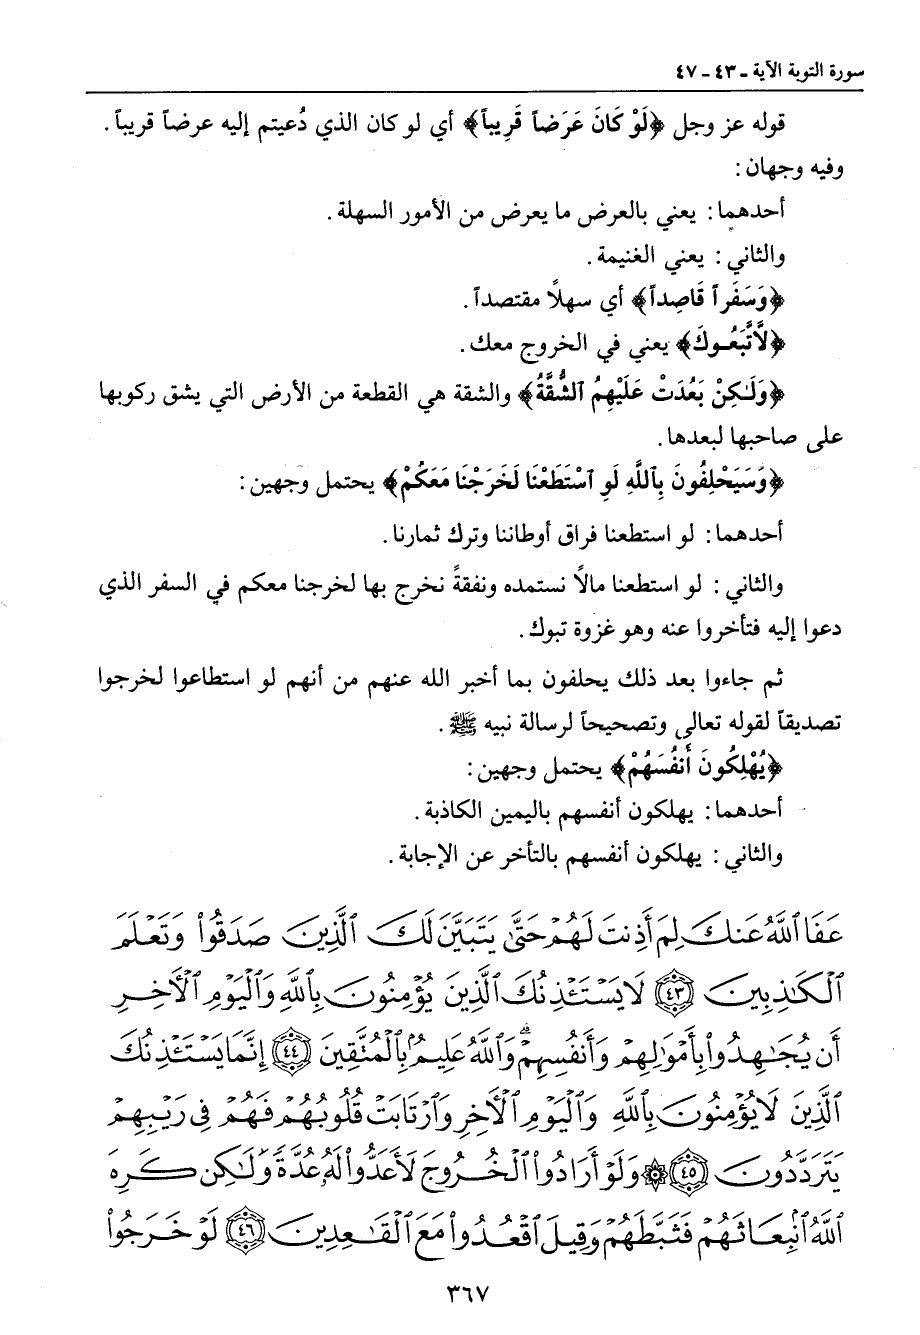 سورة التوبة الآية ـ ٤٣ ـ ٤٧
قوله عز وجل ﴿لَوْ كَانَ عَرَضاً قَرِيباً﴾ أي لو كان الذي دُعيتم إليه عرضاً قريباً.
وفيه وجهان:
أحدهما: يعني بالعرض ما يعرض من الأمور السهلة.
والثاني: يعني الغنيمة.
﴿وَسَفَراً قَاصِداً﴾ أي سهلاً مقتصداً.
﴿لاَّتَّبَعُوكَ﴾ يعني في الخروج معك.
﴿وَلَـٰكِنْ بَعُدَتْ عَلَيْهِمُ ٱلشُّقَّةُ﴾ والشقة هي القطعة من الأرض التي يشق ركوبها
على صاحبها لبعدها.
﴿وَسَيَحْلِفُونَ بِٱللَّهِ لَوِ ٱسْتَطَعْنَا لَخَرَجْنَا مَعَكُمْ﴾ يحتمل وجهين:
أحدهما: لو استطعنا فراق أوطاننا وترك ثمارنا.
والثاني: لو استطعنا مالاً نستمده ونفقةً نخرج بها لخرجنا معكم في السفر الذي
دعوا إليه فتأخروا عنه وهو غزوة تبوك.
ثم جاءوا بعد ذلك يحلفون بما أخبر الله عنهم من أنهم لو استطاعوا لخرجوا
تصديقاً لقوله تعالى وتصحيحاً لرسالة نبيه ﷺ.
﴿يُهْلِكُونَ أَنفُسَهُمْ﴾ يحتمل وجهين:
أحدهما: يهلكون أنفسهم باليمين الكاذبة.
والثاني: يهلكون أنفسهم بالتأخر عن الإجابة.
عَفَا ٱللَّهُ عَنكَ لِمَ أَذِنتَ لَهُمْ حَتَّىٰ يَتَبَيَّنَ لَكَ ٱلَّذِينَ صَدَقُوا۟ وَتَعْلَمَ
ٱلْكَـٰذِبِينَ ٤٣ لَا يَسْتَـْٔذِنُكَ ٱلَّذِينَ يُؤْمِنُونَ بِٱللَّهِ وَٱلْيَوْمِ ٱلْـَٔاخِرِ
أَن يُجَـٰهِدُوا۟ بِأَمْوَٰلِهِمْ وَأَنفُسِهِمْ ۗ وَٱللَّهُ عَلِيمٌۢ بِٱلْمُتَّقِينَ ٤٤ إِنَّمَا يَسْتَـْٔذِنُكَ
ٱلَّذِينَ لَا يُؤْمِنُونَ بِٱللَّهِ وَٱلْيَوْمِ ٱلْـَٔاخِرِ وَٱرْتَابَتْ قُلُوبُهُمْ فَهُمْ فِى رَيْبِهِمْ
يَتَرَدَّدُونَ ٤٥ ۞ وَلَوْ أَرَادُوا۟ ٱلْخُرُوجَ لَأَعَدُّوا۟ لَهُۥ عُدَّةً وَلَـٰكِن كَرِهَ
ٱللَّهُ ٱنۢبِعَاثَهُمْ فَثَبَّطَهُمْ وَقِيلَ ٱقْعُدُوا۟ مَعَ ٱلْقَـٰعِدِينَ ٤٦ لَوْ خَرَجُوا۟
٣٦٧